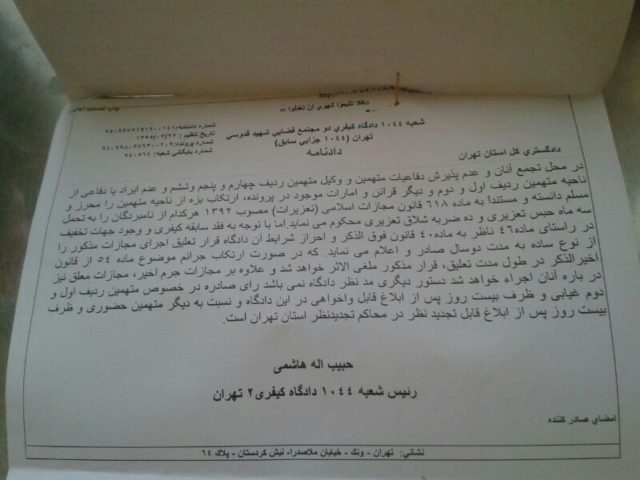 «فلا تتبعوا الهوي ان تعدلوا»
شعبه ۱۰۴۴ دادگاه کیفری دو مجتمع قضایی شهید قدوسی
تهران (۱۰۴۴ جزایی سابق)
دادنامه
شماره دادنامه:
تاریخ تنظیم: ۱۳۹۵/۰۳/۲۲
شماره پرونده:
شماره بایگانی شعبه:
دادگستري کل استان تهران
در محل تجمع آنان و عدم پذیرش دفاعیات متهمین و وکیل متهمین ردیف چهارم و پنجم وششم و عدم ایراد یا دفاعی از
ناحیه متهمین ردیف اول و دوم و دیگر قرائن و امارات موجود در پرونده، ارتکاب بزه از ناحیه متهمین را محرز و
مسلم دانسته و مستندا به ماده ۶۱۸ قانون مجازات اسلامی (تعزیرات) مصوب ۱۳۹۲ هرکدام از نامبردگان را به تحمل
سه ماه حبس تعزیری و ده ضربه شلاق تعزیری محکوم می نماید اما با توجه به فقد سابقه کیفری و وجود جهات تخفیف
در راستای ماده۴۶ ناظر به ماده۴۰ قانون فوق الذکر و احراز شرایط آن دادگاه قرار تعلیق اجرای مجازات مذکور را
از نوع ساده به مدت دوسال صادر و اعلام می نماید. که در صورت ارتکاب جرائم موضوع ماده ۵۴ از قانون
اخیرالذکر در طول مدت تعلیق، قرار مذکور ملغی الاثر خواهد شد و علاوه بر مجازات جرم اخیر، مجازات معلق نیز
در باره آنان اجراء خواهد شد دستور دیگری مد نظر دادگاه نمی باشد رای صادره در خصوص متهمین ردیف اول و
دوم غیابی و ظرف بیست روز پس از ابلاغ قابل واخواهی در این دادگاه و نسبت به دیگر متهمین حضوری و ظرف
بیست روز پس از ابلاغ قابل تجدید نظر در محاکم تجدیدنظر استان تهران است.
حبیب اله هاشمی
رئیس شعبه ۱۰۴۴ دادگاه کیفری۲ تهران
امضاي صادر کننده
نشاني: تهران - ونک - خیابان ملاصدرا- نبش کردستان - پلاک ۶۴